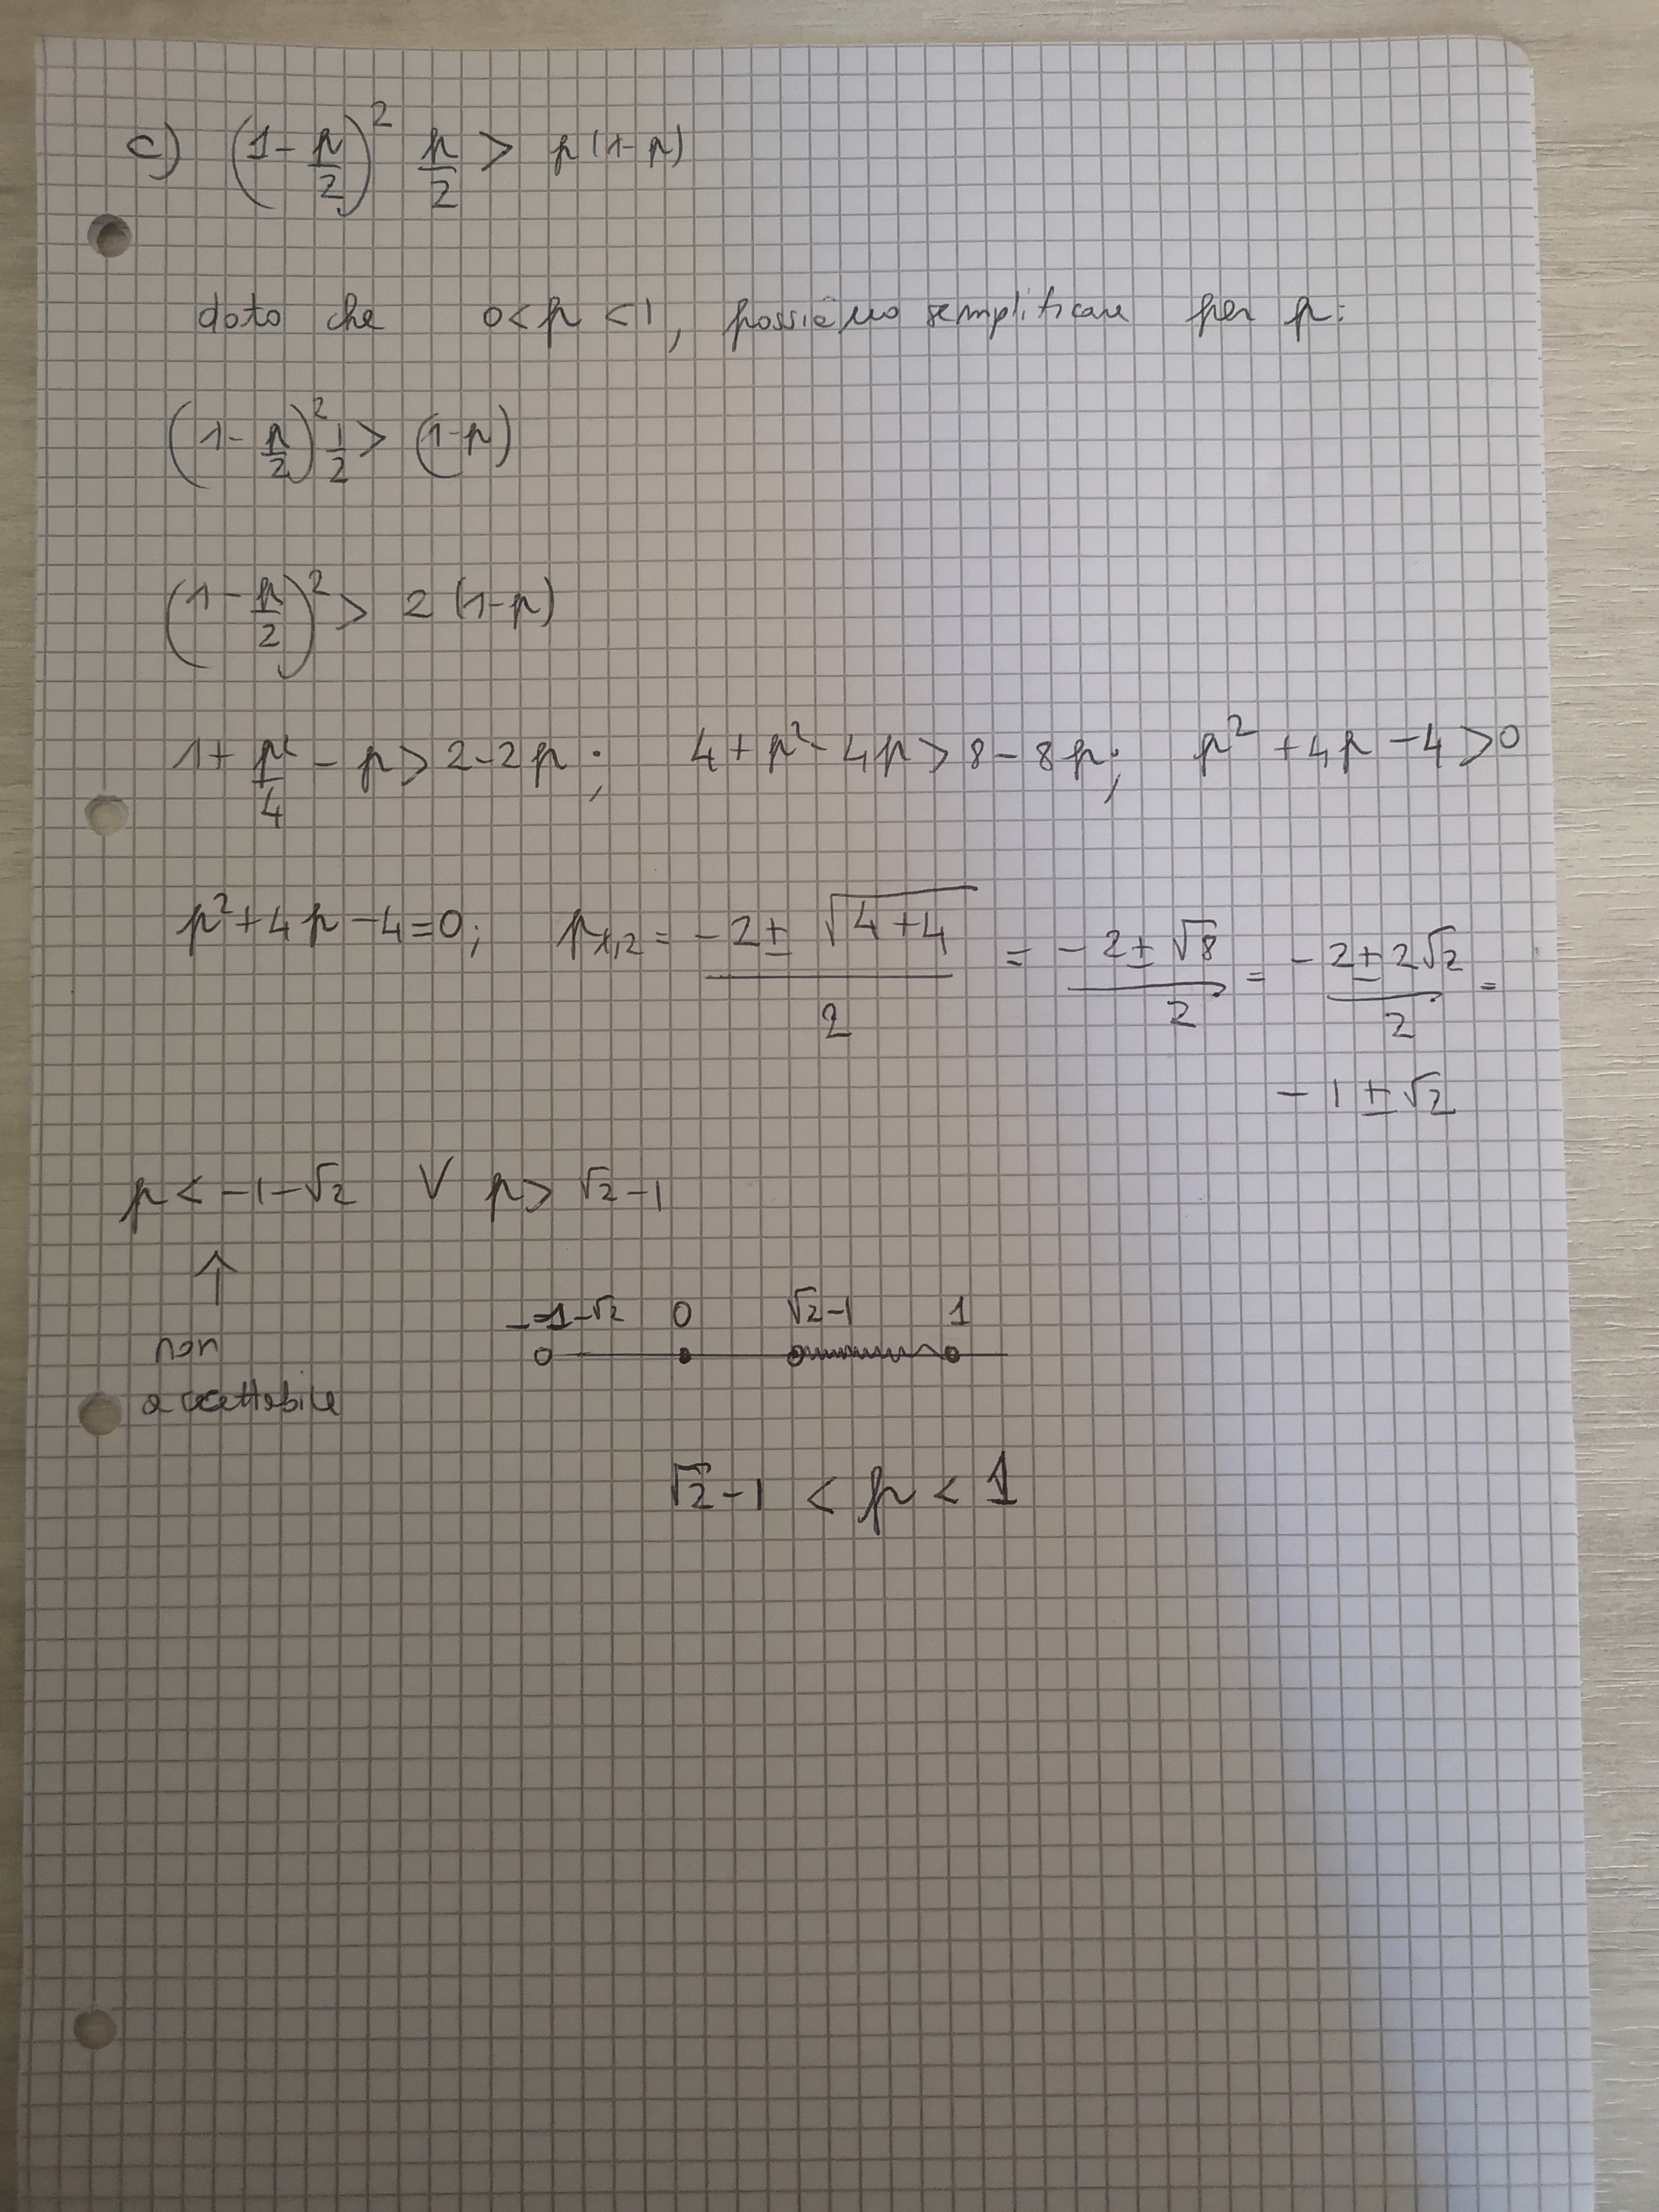 c) (1 - p/2)² p/2 > p(1-p)
dato che 0 < p < 1, possiamo semplificare per p:
(1 - p/2)² 1/2 > (1-p)
(1 - p/2)² > 2 (1-p)
1 + p²/4 - p > 2 - 2p ; 4 + p² - 4p > 8 - 8p ; p² + 4p - 4 > 0
p² + 4p - 4 = 0 ; p1,2 = (-2 ± √(4+4))/2 = (-2 ± √8)/2 = (-2 ± 2√2)/2 =
-1 ± √2
p < -1-√2 V p > √2-1
↑
-1-√2 0 √2-1 1
non
accettabile
√2-1 < p < 1